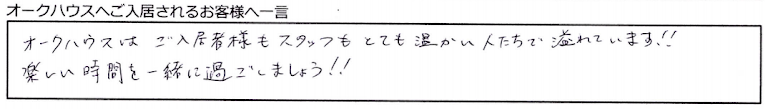 オークハウスへご入居されるお客様へ一言
オークハウスは ご入居者様も スタッフも とても 温かい 人たちで 溢れています!!
楽しい 時間を 一緒に 過ごしましょう!!